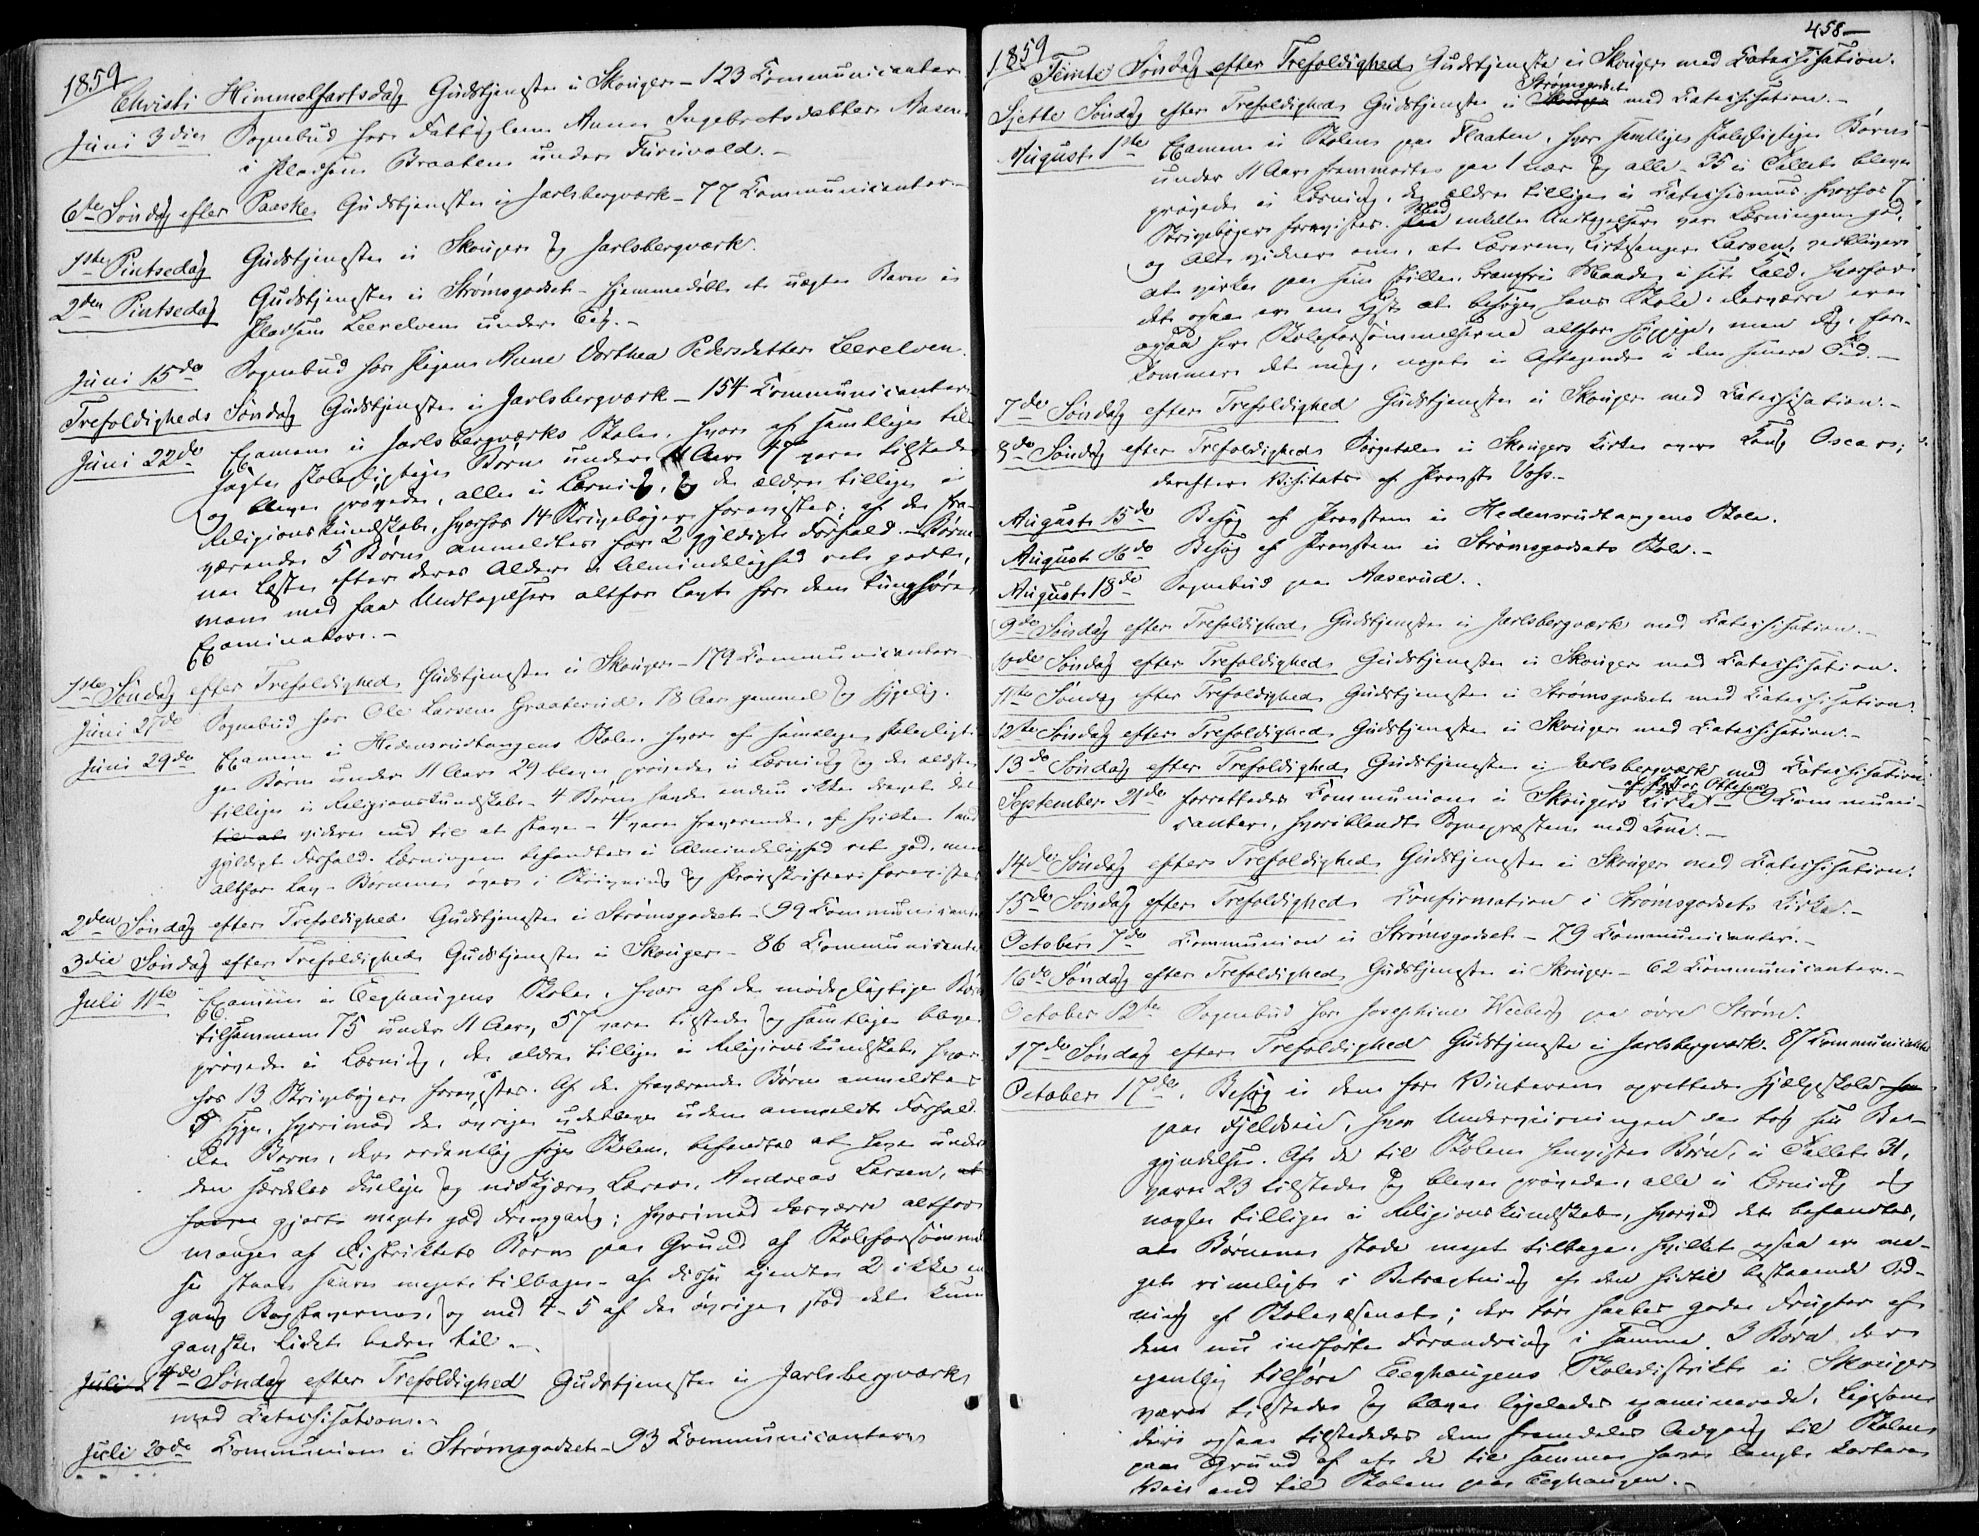 1859
Christi Himmelfartsdag Gudstjeneste i Skouger - 123 Communicanter
Juni 3die Sognebud hos Fattiglem Anne Ingebretsdatter Aasen
i Pladsen Braaten under Furuvald. -
6te Søndag efter Paaske Gudstjeneste i Jarlsbergværk - 77 Communicanter -
1ste Pintsedag Gudstjeneste i Skouger og Jarlsbergværk.
2den Pintsedag Gudstjeneste i Strømsgodset - hjemmedøbt et uægte Barn i
Pladsen Leerelven under Eeg. -
Juni 15de Sognebud hos Pigen Anne Dorthea Pedersdatter Leerelven.
Trefoldigheds Søndag Gudstjeneste i Jarlsbergværk - 154 Communicanter
Juni 22de Examen i Jarlsbergværks Skole, hvor af samtlige til-
sagte skolepligtige Børn under 11 Aar 47 vare tilstede
og bleve prøvede, alle i Læsning, og de ældre tillige i
Religionskundskab, hvorhos 14 Skrivebøger forevistes; af de fra-
værende 5 Børn anmeldtes for 2 gyldigt Forfald. - Børne-
ne læste efter deres Alder i Almindelighed ret godt,
men med faa Undtagelser altfor lavt for den tunghøre
Examinator. -
1ste Søndag efter Trefoldighed Gudstjeneste i Skouger - 179 Communicanter -
Juni 27de Sognebud hos Ole Larsen Graaterud, 78 Aar gammel og sygelig.
Juni 29de Examen i Hedensrudtangens Skole, hvor af samtlige skolepligti-
ge Børn under 11 Aar 29 bleve prøvede i Læsning og de ældste
tillige i Religionskundskab - 4 Børn havde endnu ikke drevet det
til at videre end til at stave - 4 vare fraværende, af hvilke 1 med
gyldigt Forfald. Læsningen befandtes i Almindelighed ret god, men
altfor lav - Børnene øves i Skrivning og Prøveskrifter forevistes
2den Søndag efter Trefoldighed Gudstjeneste i Strømsgodset - 99 Communicanter
3die Søndag efter Trefoldighed Gudstjeneste i Skouger - 86 Communicanter
Juli 11te Examen i Eeghaugens Skole, hvor af de mødepligtige Børn
tilsammen 75 under 11 Aar, 57 vare tilstede og samtlige bleve
prøvede i Læsning, de ældre tillige i Religionskundskab, hvor-
hos 13 Skrivebøger forevistes. Af de fraværende Børn anmeldtes
syge, hvorimod de øvrige udebleve uden anmeldt Forfald.
De Børn, der ordentlig søge Skolen, befandtes at have under
den særdeles duelige og nidkjære Lærer, Andreas Larsen,
gjort meget god Fremgang; hvorimod desværre altfor
mange af Distriktets Børn paa Grund af Skoleforsømmel-
se staae saare meget tilbage - af disse kjendte 2 ikke en
gang Bogstaverne, og med 4-5 af de øvrige stod det kun
ganske lidet bedre til. -
Juli 4de Søndag efter Trefoldighed Gudstjeneste i Jarlsbergværk
med Catechisation. -
Juli 20de Communion i Strømsgodset - 93 Communicanter
458 -
1859
Femte Søndag efter Trefoldighed Gudstjeneste i Skouger med Catechisation.
Sjette Søndag efter Trefoldighed Gudstjeneste i Skouger Strømsgodset med Catechisation. -
August 1ste Examen i Skolen paa Flaaten, hvor samtlige skolepligtige Børn
under 11 Aar fremmødte paa 1 nær og alle - 35 i Tallet bleve
prøvede i Læsning, de ældre tillige i Catechismus, hvorhos 7
Skrivebøger forevistes. Paa Med enkelte Undtagelser var Læsningen god,
og Alt vidner om, at Læreren, Kirkesanger Larsen, vedbliver
at virke paa sin stille, Maade i sit Kald, hvorfor
det ogsaa er en Lyst at besøge hans Skole. desværre ere
ogsaa her Skoleforsømmelserne altfor hyppige, men dog, fore-
kommer det mig, noget i Aftagende i den senere Tid. -
7de Søndag efter Trefoldighed Gudstjeneste i Skouger med Catechisation. -
8de Søndag efter Trefoldighed Sørgetale i Skougers Kirke over Kong Oscar;
derefter Visitats af Provst Voss. -
August 15de Besøg af Provsten i Hedensrudtangens Skole.
August 16de Besøg af Provsten i Strømsgodsets Skole. -
August 18de Sognebud paa Aaserud.
9de Søndag efter Trefoldighed Gudstjeneste i Jarlsbergværk med Catechisation. -
10de Søndag efter Trefoldighed Gudstjeneste i Skouger med Catechisation.
11te Søndag efter Trefoldighed Gudstjeneste i Strømsgodset med Catechisation.
12te Søndag efter Trefoldighed Gudstjeneste i Skouger med Catechisation. -
13de Søndag efter Trefoldighed Gudstjeneste i Jarlsbergværk med Catechisation
September 21de forrettedes Communion i Skougers Kirke af Pastor Ottesen - 9 Communi-
canter, hvoriblandt Sognepræsten med Kone. -
14de Søndag efter Trefoldighed Gudstjeneste i Skouger med Catechisation.
15de Søndag efter Trefoldighed Confirmation i Strømsgodsets Kirke. -
October 7de Communion i Strømsgodset - 79 Communicanter. -
16de Søndag efter Trefoldighed Gudstjeneste i Skouger - 62 Communicanter. -
October 12te Sognebud hos Josephine Weeberg paa øvre Strøm.
17de Søndag efter Trefoldighed Gudstjeneste i Jarlsbergværk. 87 Communicanter
October 17de. Besøg i den for Vinteren oprettede Hjælpeskole
paa Fjeldseid, hvor Underviisningen da tog sin Be-
gyndelse. Af de til Skolen henviste Børn, i Tallet 31,
vare 23 tilstede og bleve prøvede, alle i Læsning og
nogle tillige i Religionskundskab, hvorved det befandtes,
at Børnene stode meget tilbage, hvilket ogsaa er me-
get rimeligt i Betragtning af den hidtil bestaaende Ord-
ning af Skolevæsenet; der tør haabes gode Frugter af
den nu indførte Forandring i samme. 3 Børn, der
egentlig tilhøre Eeghaugens Skoledistrikt i Skouger
vare tilstede og bleve ligeledes examinerede, ligesom
der ogsaa tilstededes dem fremdeles Adgang til Skolen
paa Grund af at de til samme have langt kortere
Vei end til Skolen paa Eeghaugen. -